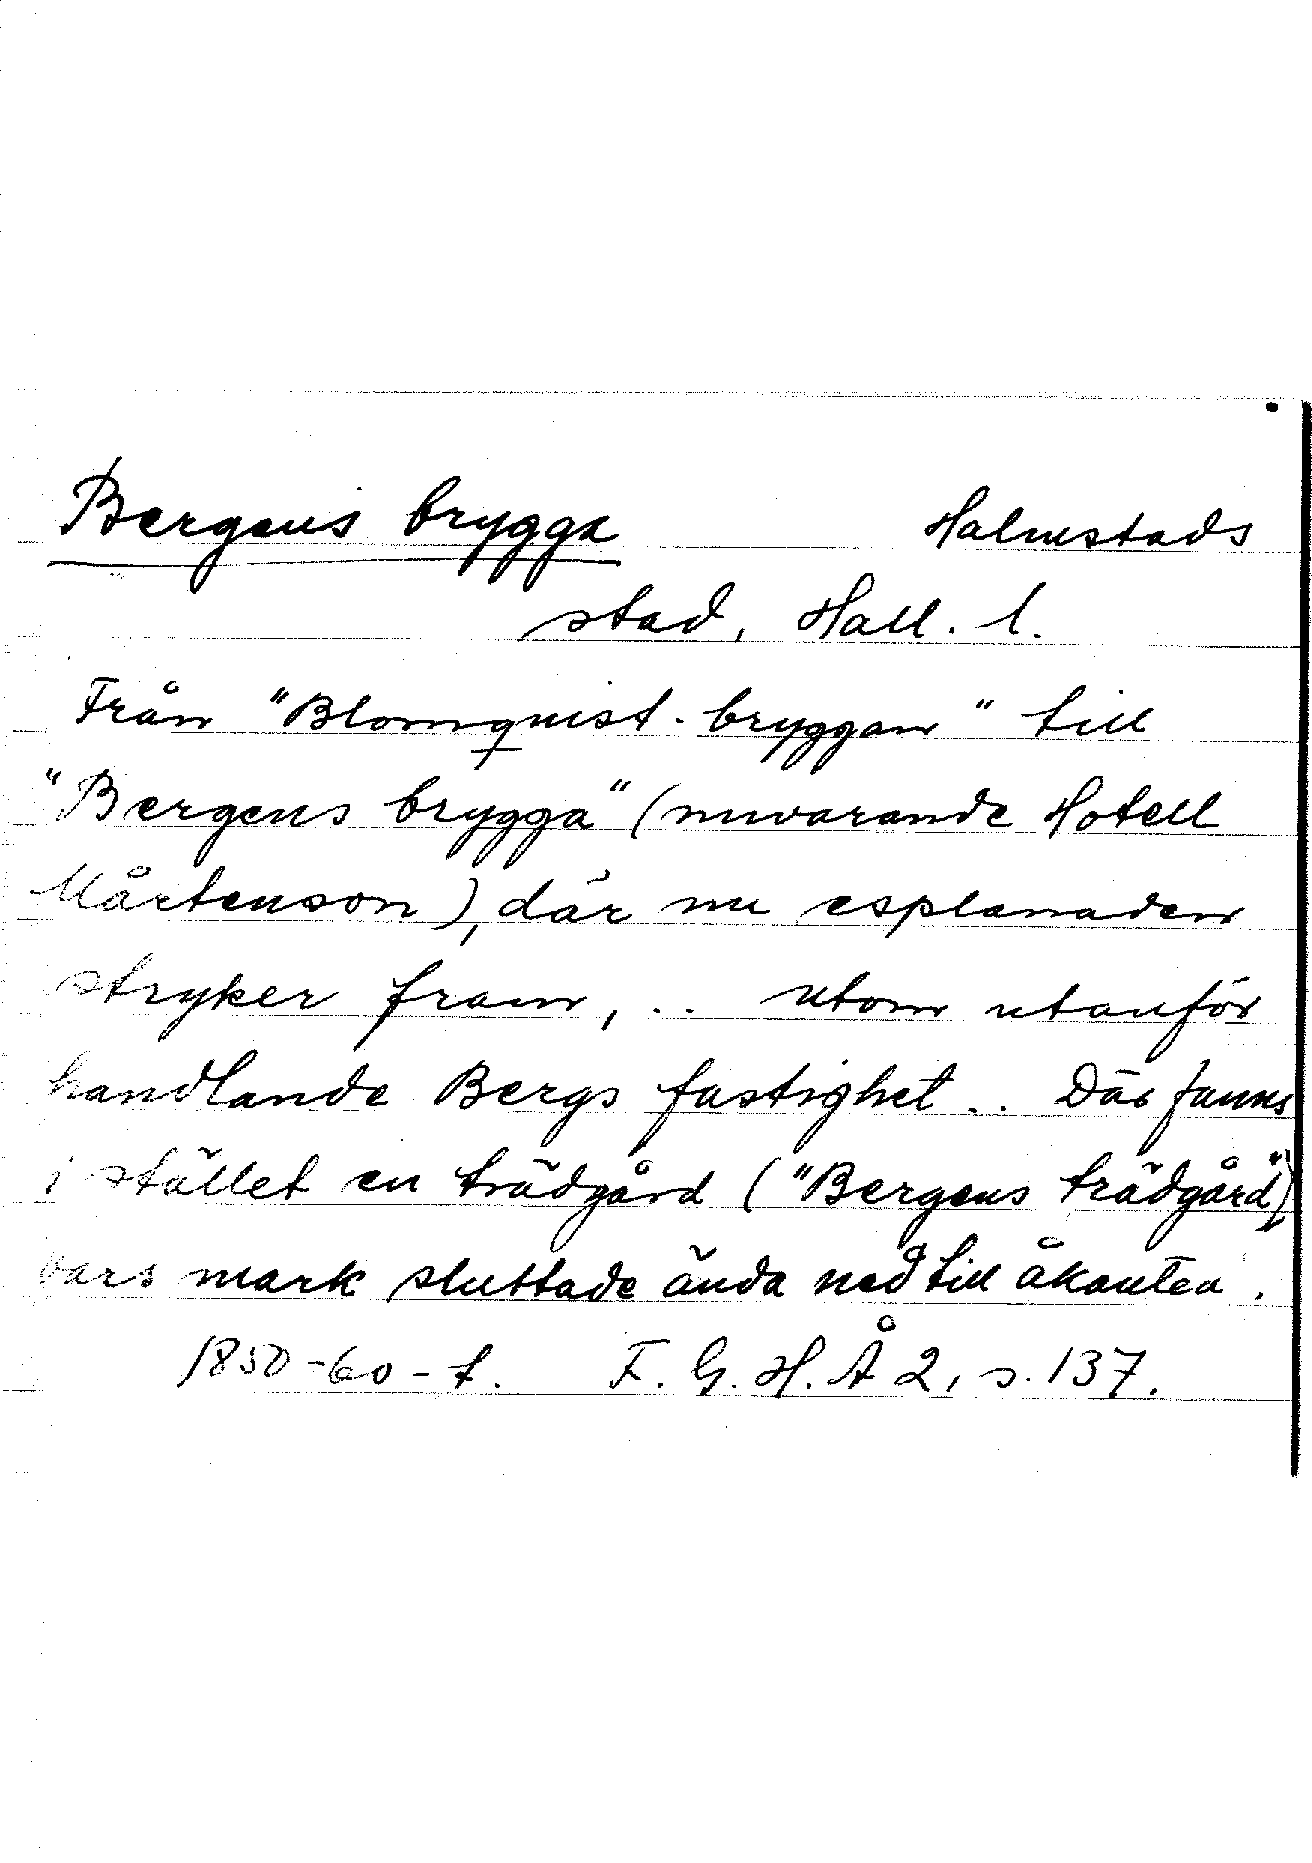 Bergens brygga Halmstads
stad, Hall. l.
Från "Blomquist-bryggan" till
"Bergens brygga" (nuvarande Hotell
Mårtenson), där nu esplanaden
stryker fram, .. utom utanför
handlande Bergs fastighet .. Där fanns
i stället en trädgård ("Bergens trädgård")
vars mark sluttade ända ned till åkanten.
1850-60-t. F. G. H. Å 2, s. 137.